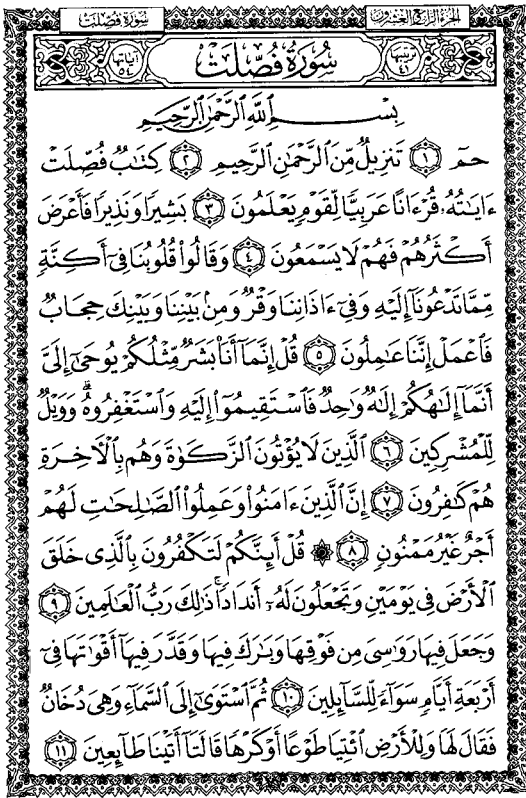 الجزء الرابع والعشرون
سورة فصلت
ترتيبها ٤١
سُورَةُ فُصِّلَتْ
آياتها ٥٤
بِسْمِ اللَّهِ الرَّحْمَٰنِ الرَّحِيمِ
حمٓ ۝١ تَنزِيلٌ مِّنَ ٱلرَّحْمَٰنِ ٱلرَّحِيمِ ۝٢ كِتَٰبٌ فُصِّلَتْ
ءَايَٰتُهُۥ قُرْءَانًا عَرَبِيًّا لِّقَوْمٍ يَعْلَمُونَ ۝٣ بَشِيرًا وَنَذِيرًا فَأَعْرَضَ
أَكْثَرُهُمْ فَهُمْ لَا يَسْمَعُونَ ۝٤ وَقَالُوا۟ قُلُوبُنَا فِىٓ أَكِنَّةٍ
مِّمَّا تَدْعُونَآ إِلَيْهِ وَفِىٓ ءَاذَانِنَا وَقْرٌ وَمِنۢ بَيْنِنَا وَبَيْنِكَ حِجَابٌ
فَٱعْمَلْ إِنَّنَا عَٰمِلُونَ ۝٥ قُلْ إِنَّمَآ أَنَا۠ بَشَرٌ مِّثْلُكُمْ يُوحَىٰٓ إِلَىَّ
أَنَّمَآ إِلَٰهُكُمْ إِلَٰهٌ وَٰحِدٌ فَٱسْتَقِيمُوٓا۟ إِلَيْهِ وَٱسْتَغْفِرُوهُ ۗ وَوَيْلٌ
لِّلْمُشْرِكِينَ ۝٦ ٱلَّذِينَ لَا يُؤْتُونَ ٱلزَّكَوٰةَ وَهُم بِٱلْءَاخِرَةِ
هُمْ كَٰفِرُونَ ۝٧ إِنَّ ٱلَّذِينَ ءَامَنُوا۟ وَعَمِلُوا۟ ٱلصَّٰلِحَٰتِ لَهُمْ
أَجْرٌ غَيْرُ مَمْنُونٍ ۝٨ ۞ قُلْ أَئِنَّكُمْ لَتَكْفُرُونَ بِٱلَّذِى خَلَقَ
ٱلْأَرْضَ فِى يَوْمَيْنِ وَتَجْعَلُونَ لَهُۥٓ أَندَادًا ۚ ذَٰلِكَ رَبُّ ٱلْعَٰلَمِينَ ۝٩
وَجَعَلَ فِيهَا رَوَٰسِىَ مِن فَوْقِهَا وَبَٰرَكَ فِيهَا وَقَدَّرَ فِيهَآ أَقْوَٰتَهَا فِىٓ
أَرْبَعَةِ أَيَّامٍ سَوَآءً لِّلسَّآئِلِينَ ۝١٠ ثُمَّ ٱسْتَوَىٰٓ إِلَى ٱلسَّمَآءِ وَهِىَ دُخَانٌ
فَقَالَ لَهَا وَلِلْأَرْضِ ٱئْتِيَا طَوْعًا أَوْ كَرْهًا قَالَتَآ أَتَيْنَا طَآئِعِينَ ۝١١